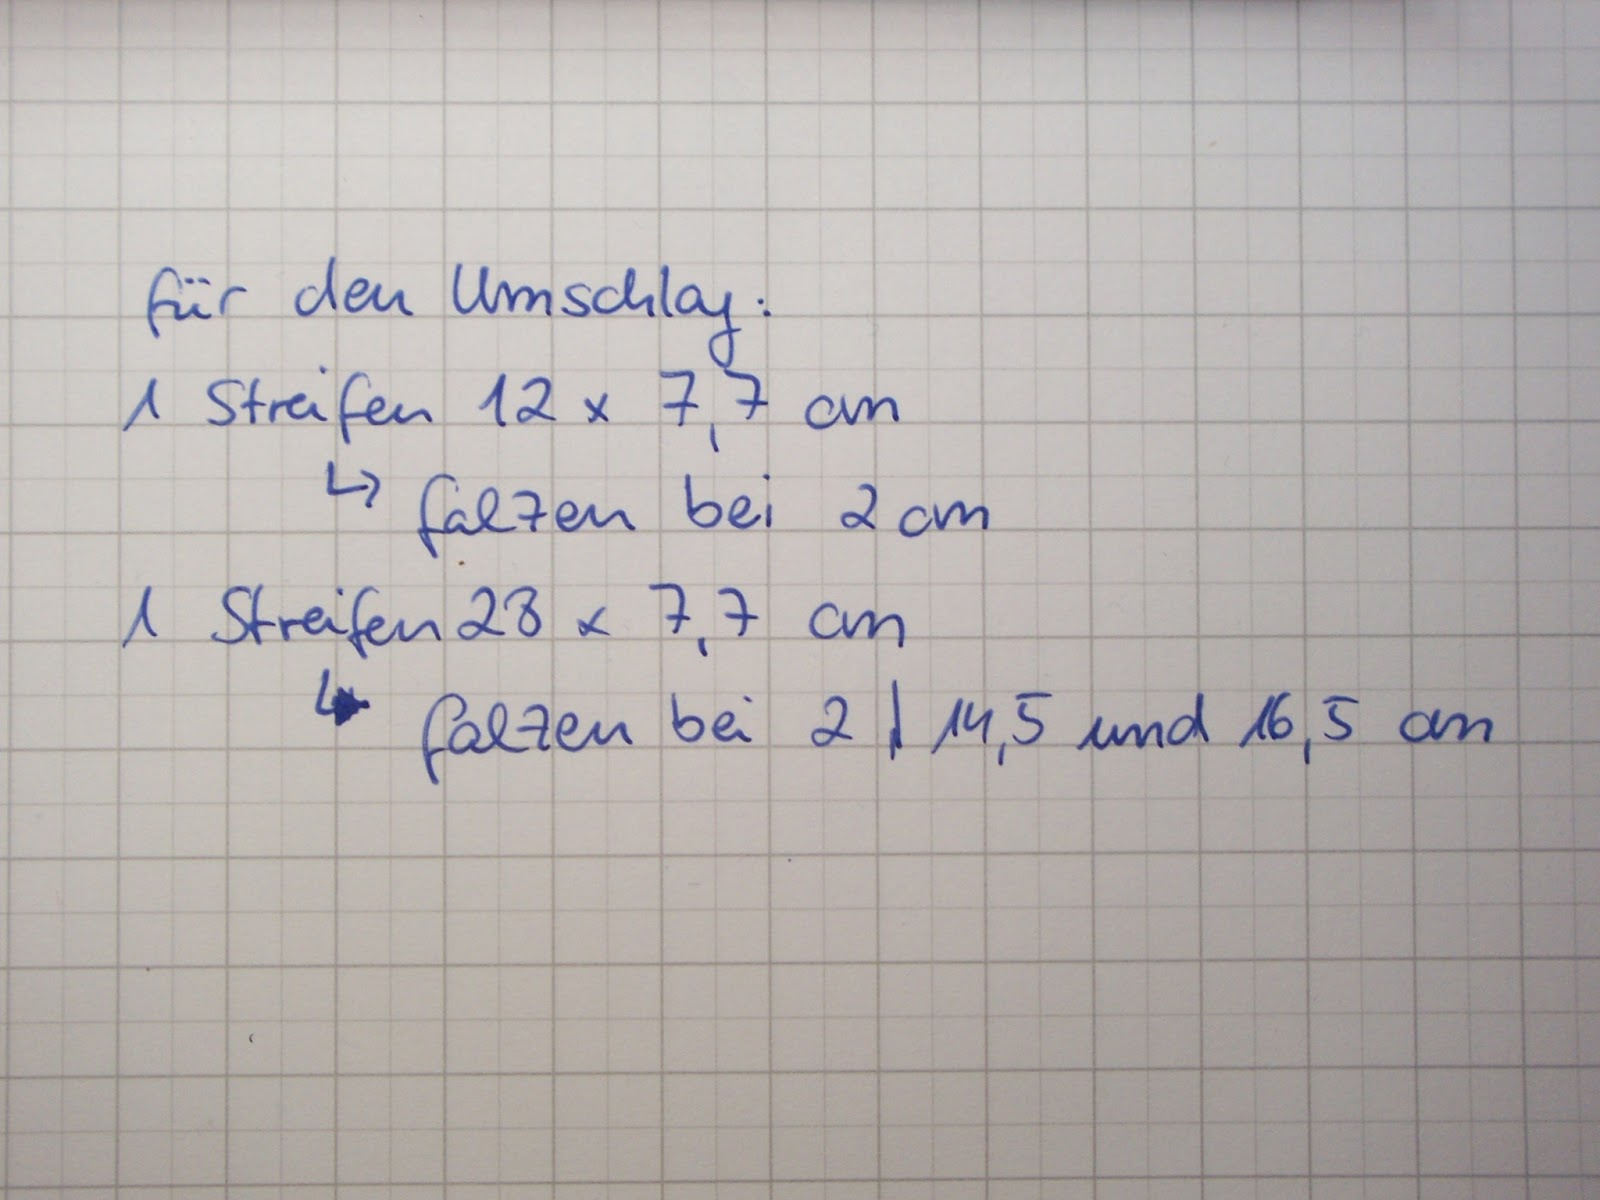 für den Umschlag:
1 Streifen 12 x 7,7 cm
↳ falzen bei 2 cm
1 Streifen 28 x 7,7 cm
↳ falzen bei 2 | 14,5 und 16,5 cm